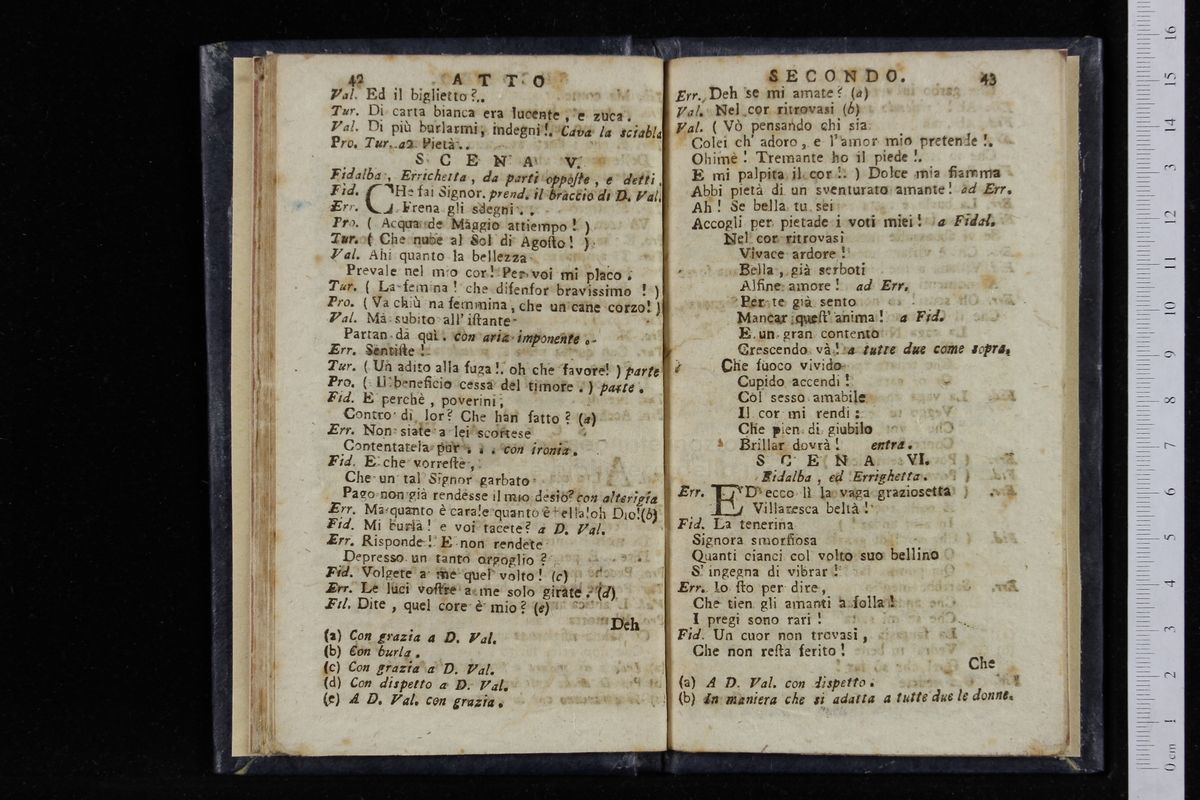 42 ATTO
Val. Ed il biglietto?..
Tur. Di carta bianca era lucente, e zuca.
Val. Di più burlarmi, indegni!. Cava la sciabla
Pro. Tur. a2 Pietà..
SCENA V.
Fidalba, Errichetta, da parti oppoſte, e detti.
Fid. CHe fai Signor. prend. il braccio di D. Val.
Err. Frena gli sdegni..
Pro. ( Acqua de Maggio attiempo! )
Tur. ( Che nube al Sol di Agoſto! )
Val. Ahi quanto la bellezza
Prevale nel mio cor! Per voi mi placo.
Tur. ( La femina! che difenfor bravissimo! )
Pro. ( Va chiù na femmina, che un cane corzo! )
Val. Ma subito all' iſtante
Partan da quì. con aria imponente.
Err. Sentiſte!
Tur. ( Un adito alla fuga!. oh che favore! ) parte
Pro. ( Il beneficio cessa del timore. ) parte.
Fid. E perchè, poverini,
Contro di lor? Che han fatto? (a)
Err. Non siate a lei scortese
Contentatela pur... con ironia.
Fid. E che vorreſte,
Che un tal Signor garbato
Pago non già rendesse il mio desio? con alterigia
Err. Ma quanto è cara! e quanto è bella! oh Dio! (b)
Fid. Mi burla! e voi tacete? a D. Val.
Err. Risponde! E non rendete
Depresso un tanto orgoglio?
Fid. Volgete a me quel volto! (c)
Err. Le luci voſtre a me solo girate. (d)
Fil. Dite, quel core è mio? (e)
Deh
(a) Con grazia a D. Val.
(b) Con burla.
(c) Con grazia a D. Val.
(d) Con dispetto a D. Val.
(e) A D. Val. con grazia.
SECONDO. 43
Err. Deh se mi amate? (a)
Val. Nel cor ritrovasi (b)
Val. ( Vò pensando chi sia
Colei ch' adoro, e l'amor mio pretende!.
Ohimè! Tremante ho il piede!.
E mi palpita il cor!. ) Dolce mia fiamma
Abbi pietà di un sventurato amante! ad Err.
Ah! Se bella tu sei
Accogli per pietade i voti miei! a Fidal.
Nel cor ritrovasi
Vivace ardore!
Bella, già serboti
Alfine amore! ad Err.
Per te già sento
Mancar queſt' anima! a Fid.
E un gran contento
Crescendo và! a tutte due come sopra.
Che fuoco vivido
Cupido accendi!
Col sesso amabile
Il cor mi rendi:
Che pien di giubilo
Brillar dovrà! entra.
SCENA VI.
Fidalba, ed Errighetta.
Err. ED ecco lì la vaga graziosetta
Villanesca beltà!
Fid. La tenerina
Signora smorfiosa
Quanti cianci col volto suo bellino
S' ingegna di vibrar!
Err. Io ſto per dire,
Che tien gli amanti a folla!
I pregi sono rari!
Fid. Un cuor non trovasi,
Che non reſta ferito!
Che
(a) A D. Val. con dispetto.
(b) In maniera che si adatta a tutte due le donne.
0 cm 1 2 3 4 5 6 7 8 9 10 11 12 13 14 15 16